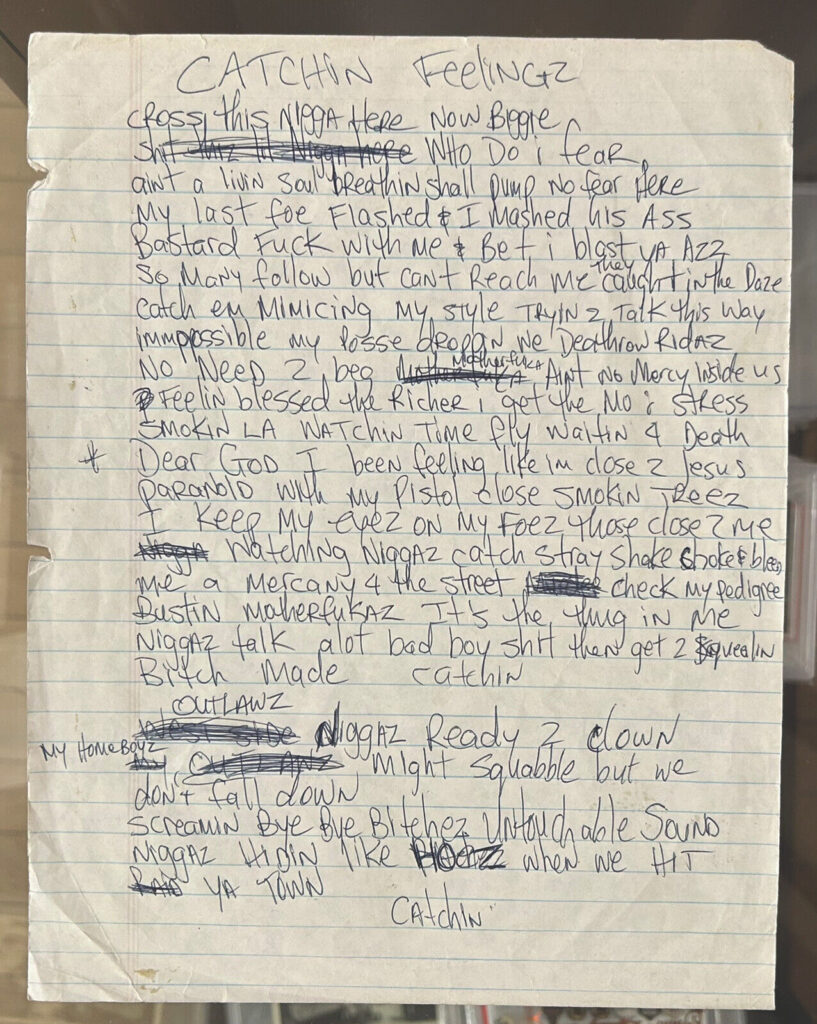 CATCHIN FeelINGZ
CROSS this NIGGA HERE NOW BIGGIE
WHO DO i fear
aint a livin soul breathin shall pump NO feAR HeRe
My last foe Flashed & I MAshed his Ass
BAstARD Fuck with me & Bet i blast yA AZZ
So MANY follow but cAnt Reach Me They caught in the Daze
catch em MIMICING My style TRYIN 2 TAlk this WAY
immpossible my posse droppin we DeAthrow RidAz
NO NeeD 2 beg MothERfukA AINt No MeRcy Inside us
Feelin blessed the Richer i get the Mo i stRess
SMOKIN LA WATchin Time fly WAitin 4 Death
* Dear GOD I been feeling like im close 2 Jesus
PARANOID with my Pistol close SMOKIN TReez
I Keep My eyez ON My Foez those close 2 me
Watching NIGGAZ catch stray shake choke & bleed
me a MeRcANy 4 the street check My pedigree
Bustin MothERfukAz It's the thug in me
NIGGAZ talk alot bad boy shit then get 2 squealin
Bitch Made catchin
OUTLAWZ
NIGGAZ Ready 2 clown
My HomeBoyz MIght Squabble but we
don't fall down
Screamin Bye Bye Bitchez UNtouchable SouND
NIGGAZ HIDIN like HOEZ when we HIT
YA TOWN
CAtchin